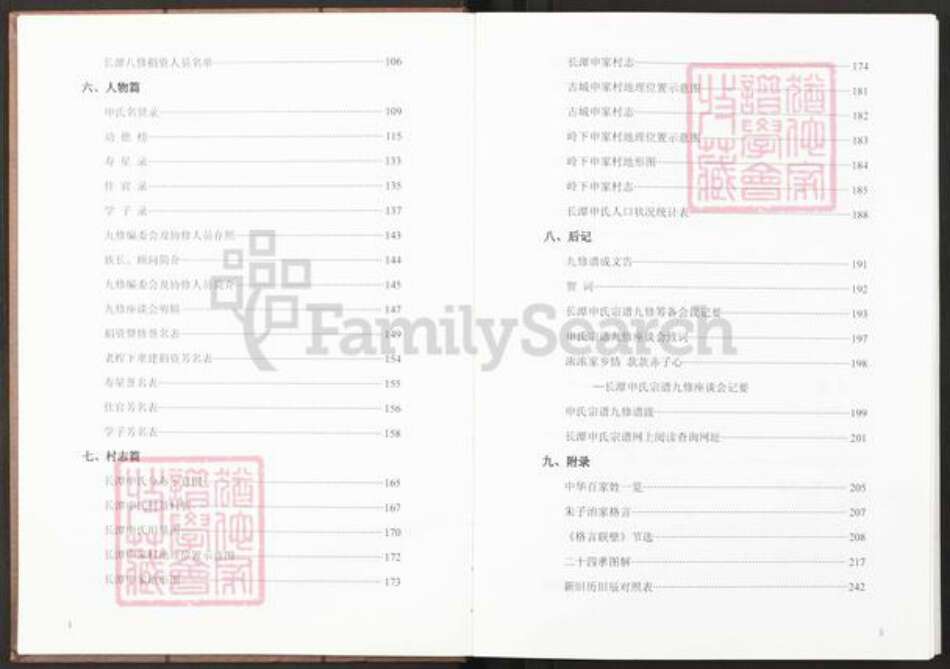 长潭八修捐资人员名单 106
六、人物篇
申氏名贤录 109
功德榜 115
寿星录 133
仕官录 135
学子录 137
九修编委会及协修人员存照 143
族长、顾问简介 144
九修编委会及协修人员简介 145
九修座谈会剪辑 147
捐资暨修谱名表 149
重建捐资芳名表 154
寿星芳名表 155
仕官芳名表 156
学子芳名表 158
七、村志篇
长潭申氏 165
长潭申氏 167
长潭申氏 170
长潭申家村地理位置示意图 172
长潭申家 173
1
长潭申家村志 174
古城申家村地理位置示意图 181
古城申家村志 182
岭下申家村地理位置示意图 183
岭下申家村地形图 184
岭下申家村志 185
长潭申氏人口状况统计表 188
八、后记
九修谱成文告 191
贺词 192
长潭申氏宗谱九修筹备会议记要 193
申氏宗谱九修座谈会致词 197
浓浓家乡情 款款赤子心 198
—长潭申氏宗谱九修座谈会记要
申氏宗谱九修谱跋 199
长潭申氏宗谱网上阅读查询网址 201
九、附录
中华百家姓一览 205
朱子治家格言 207
《格言联璧》节选 208
二十四孝图解 217
新旧历旧辰对照表 242
猶他家譜學會收藏
猶他家譜學會收藏
FamilySearch